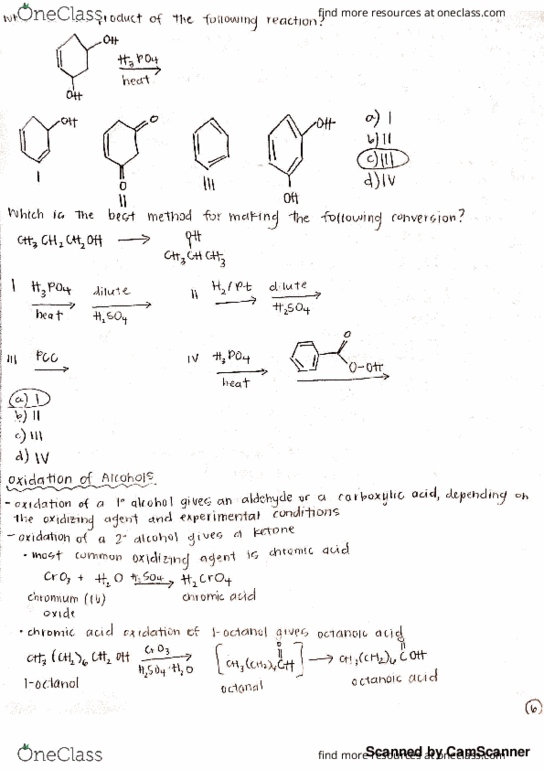 OneClass
find more resources at oneclass.com
product of the following reaction?
OH
H3PO4
heat
OH
OH
O
OH
a) I
b) II
c) III
d) IV
I
O
II
III
OH
Which is the best method for making the following conversion?
CH3 CH2 CH2 OH
OH
CH3 CH CH3
I H3PO4 dilute
heat H2SO4
II H2/Pt dilute
H2SO4
III PCC
IV H3PO4
heat
O
O-OH
a) I
b) II
c) III
d) IV
oxidation of Alcohols
- oxidation of a 1° alcohol gives an aldehyde or a carboxylic acid, depending on
the oxidizing agent and experimental conditions
- oxidation of a 2° alcohol gives a ketone
• most common oxidizing agent is chromic acid
CrO3 + H2O H2SO4 H2CrO4
chromium
oxide
chromic acid
• chromic acid oxidation of 1-octanol gives octanoic acid
CH3 (CH2)6 CH2 OH CrO3
H2SO4 H2O
O
CH3(CH2)6CH
O
CH3(CH2)6COH
1-octanol
octanal
octanoic acid
6
OneClass
find more resources at oneclass.com
Scanned by CamScanner